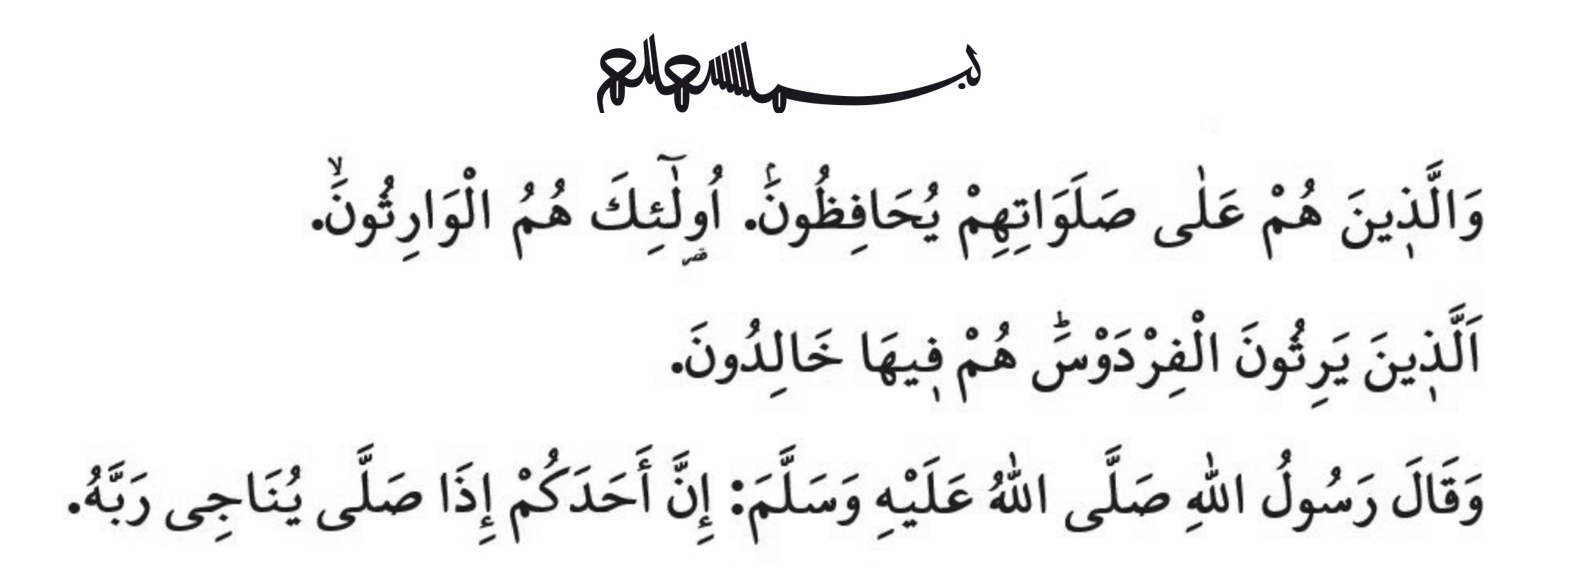 بسم الله الرحمن الرحيم
وَالَّذٖينَ هُمْ عَلٰى صَلَوَاتِهِمْ يُحَافِظُونَۘ. اُو۬لٰٓئِكَ هُمُ الْوَارِثُونَۙ.
اَلَّذٖينَ يَرِثُونَ الْفِرْدَوْسَؕ هُمْ فٖيهَا خَالِدُونَ.
وَقَالَ رَسُولُ اللّٰهِ صَلَّى اللّٰهُ عَلَيْهِ وَسَلَّمَ: إِنَّ أَحَدَكُمْ إِذَا صَلَّى يُنَاجِى رَبَّهُ.